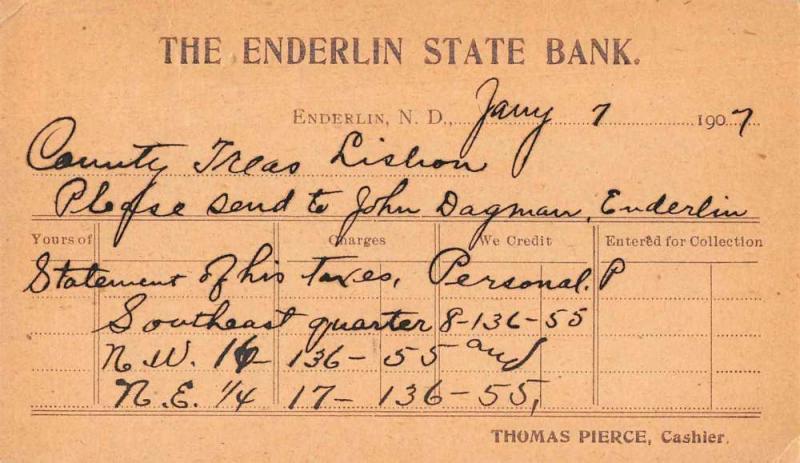 THE ENDERLIN STATE BANK.
ENDERLIN, N. D., Jany 7 1907
County Treas Lisbon
Please send to John Dagman, Enderlin
Yours of Charges We Credit Entered for Collection
Statement of his taxes, Personal. P
Southeast quarter 8-136-55
N.W. 16- 136- 55 and
N.E. 1/4 17- 136-55,
THOMAS PIERCE, Cashier.